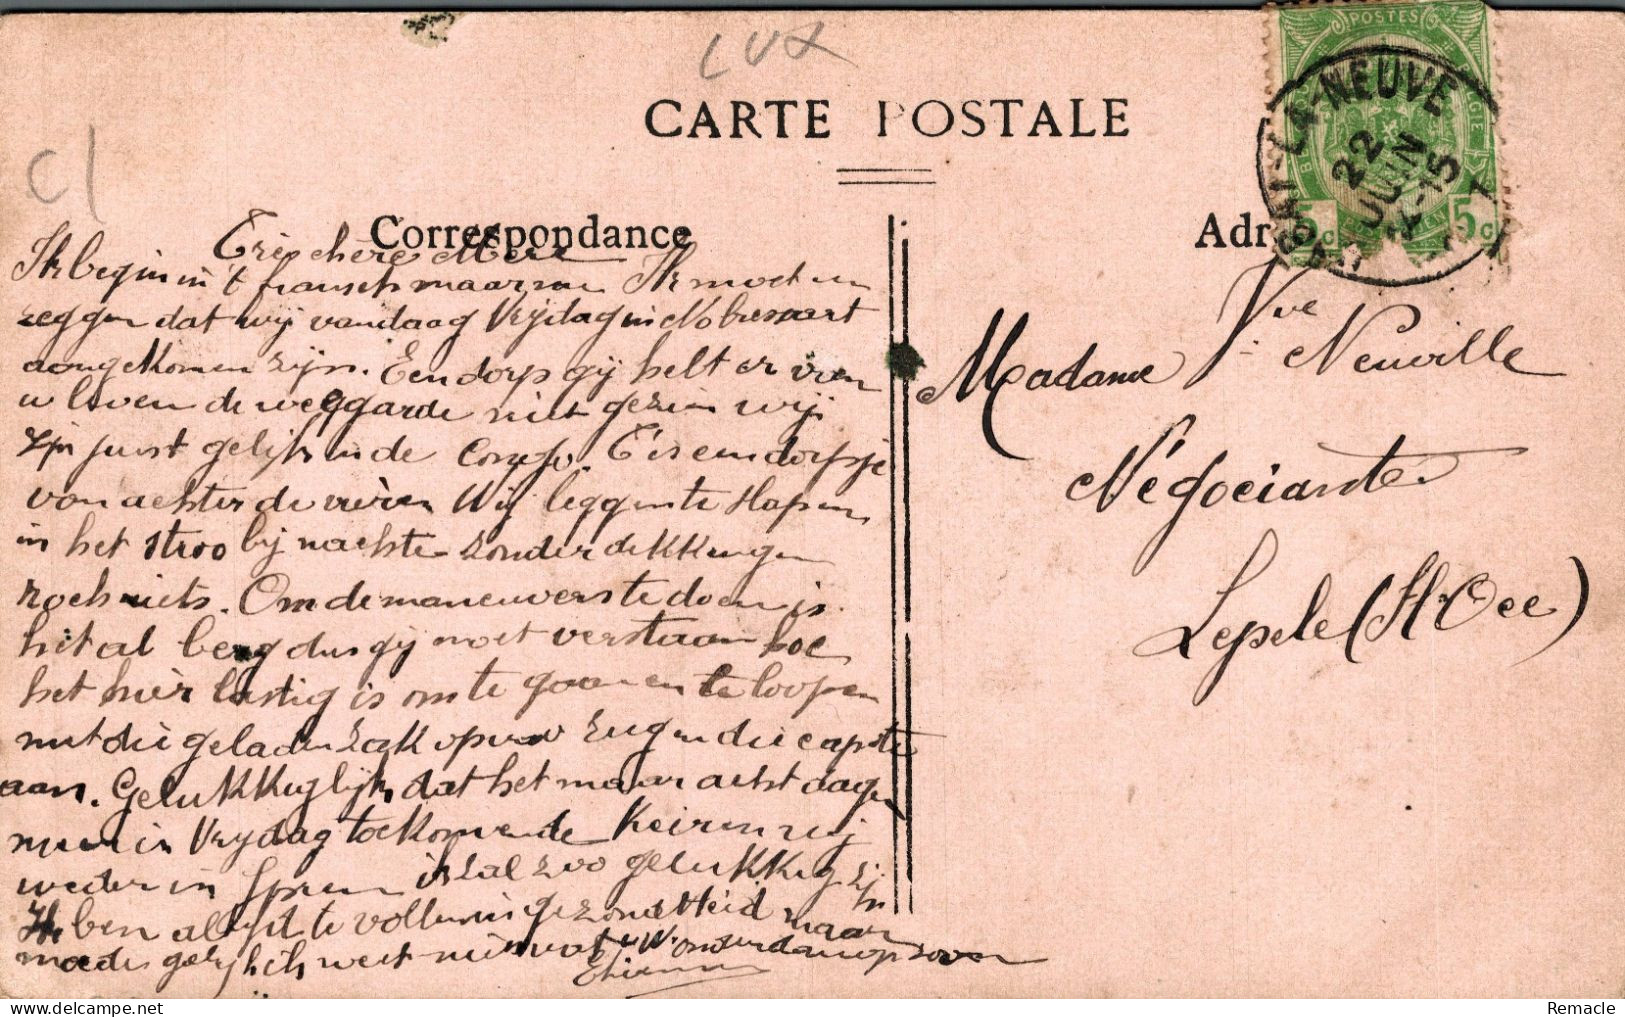 LUX
CARTE POSTALE
C/
POSTES
NEUVE
22
JUIN
5c
5c
Correspondance
Très chère Mère
Ik begin in 't fransch maar Ik moet u
zeggen dat wij vandaag Vrijdag in Nobressart
aangekomen zijn. Een dorp gij helt er van
u leven de weggarde niet gezien wij
zijn juist gelijk in de Congo. T is een dorpje
van achter de Wij leggen te slapen
in het stroo bij nachte zonder dekkingen
noch niets. Om de maneuvers te doen is
het al berg dus gij moet verstaan hoe
het hier lastig is om te gaan en te loopen
met die geladen zak op uw en die capote
aan. Gelukkiglijk dat het maar acht dagen
meer is Vrydag toekomende keiren wij
weder in Ik zal zoo gelukkig zijn
Ik ben altijd te vollen in gezondheid maar
moede gelijk ik weet niet wat
Etienne
Madame Vve Neuville
Négociante
Lepele (Fl. Occ)
Remacle